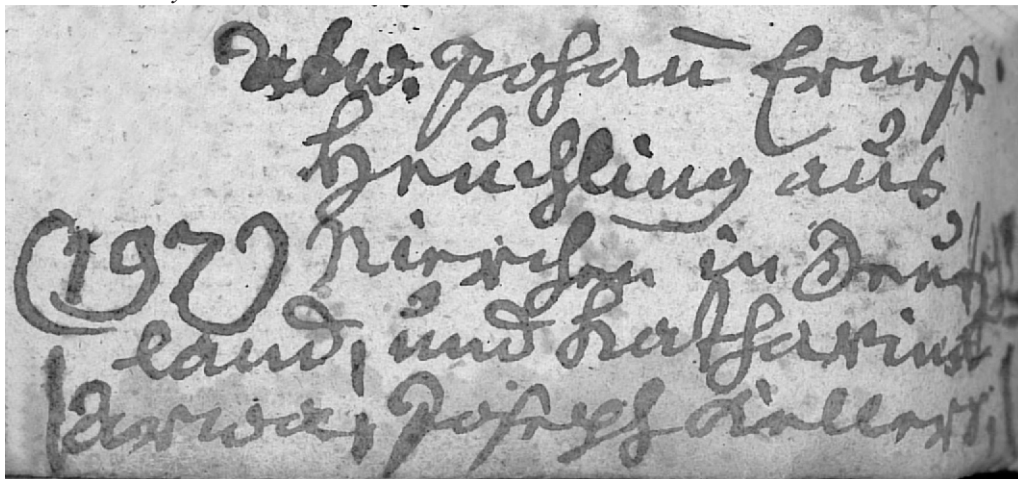 Johan̄ Ernest
Heuchling aus
(197) Kierchen in Deutsch
land, und Katharina
Joseph Kellers,